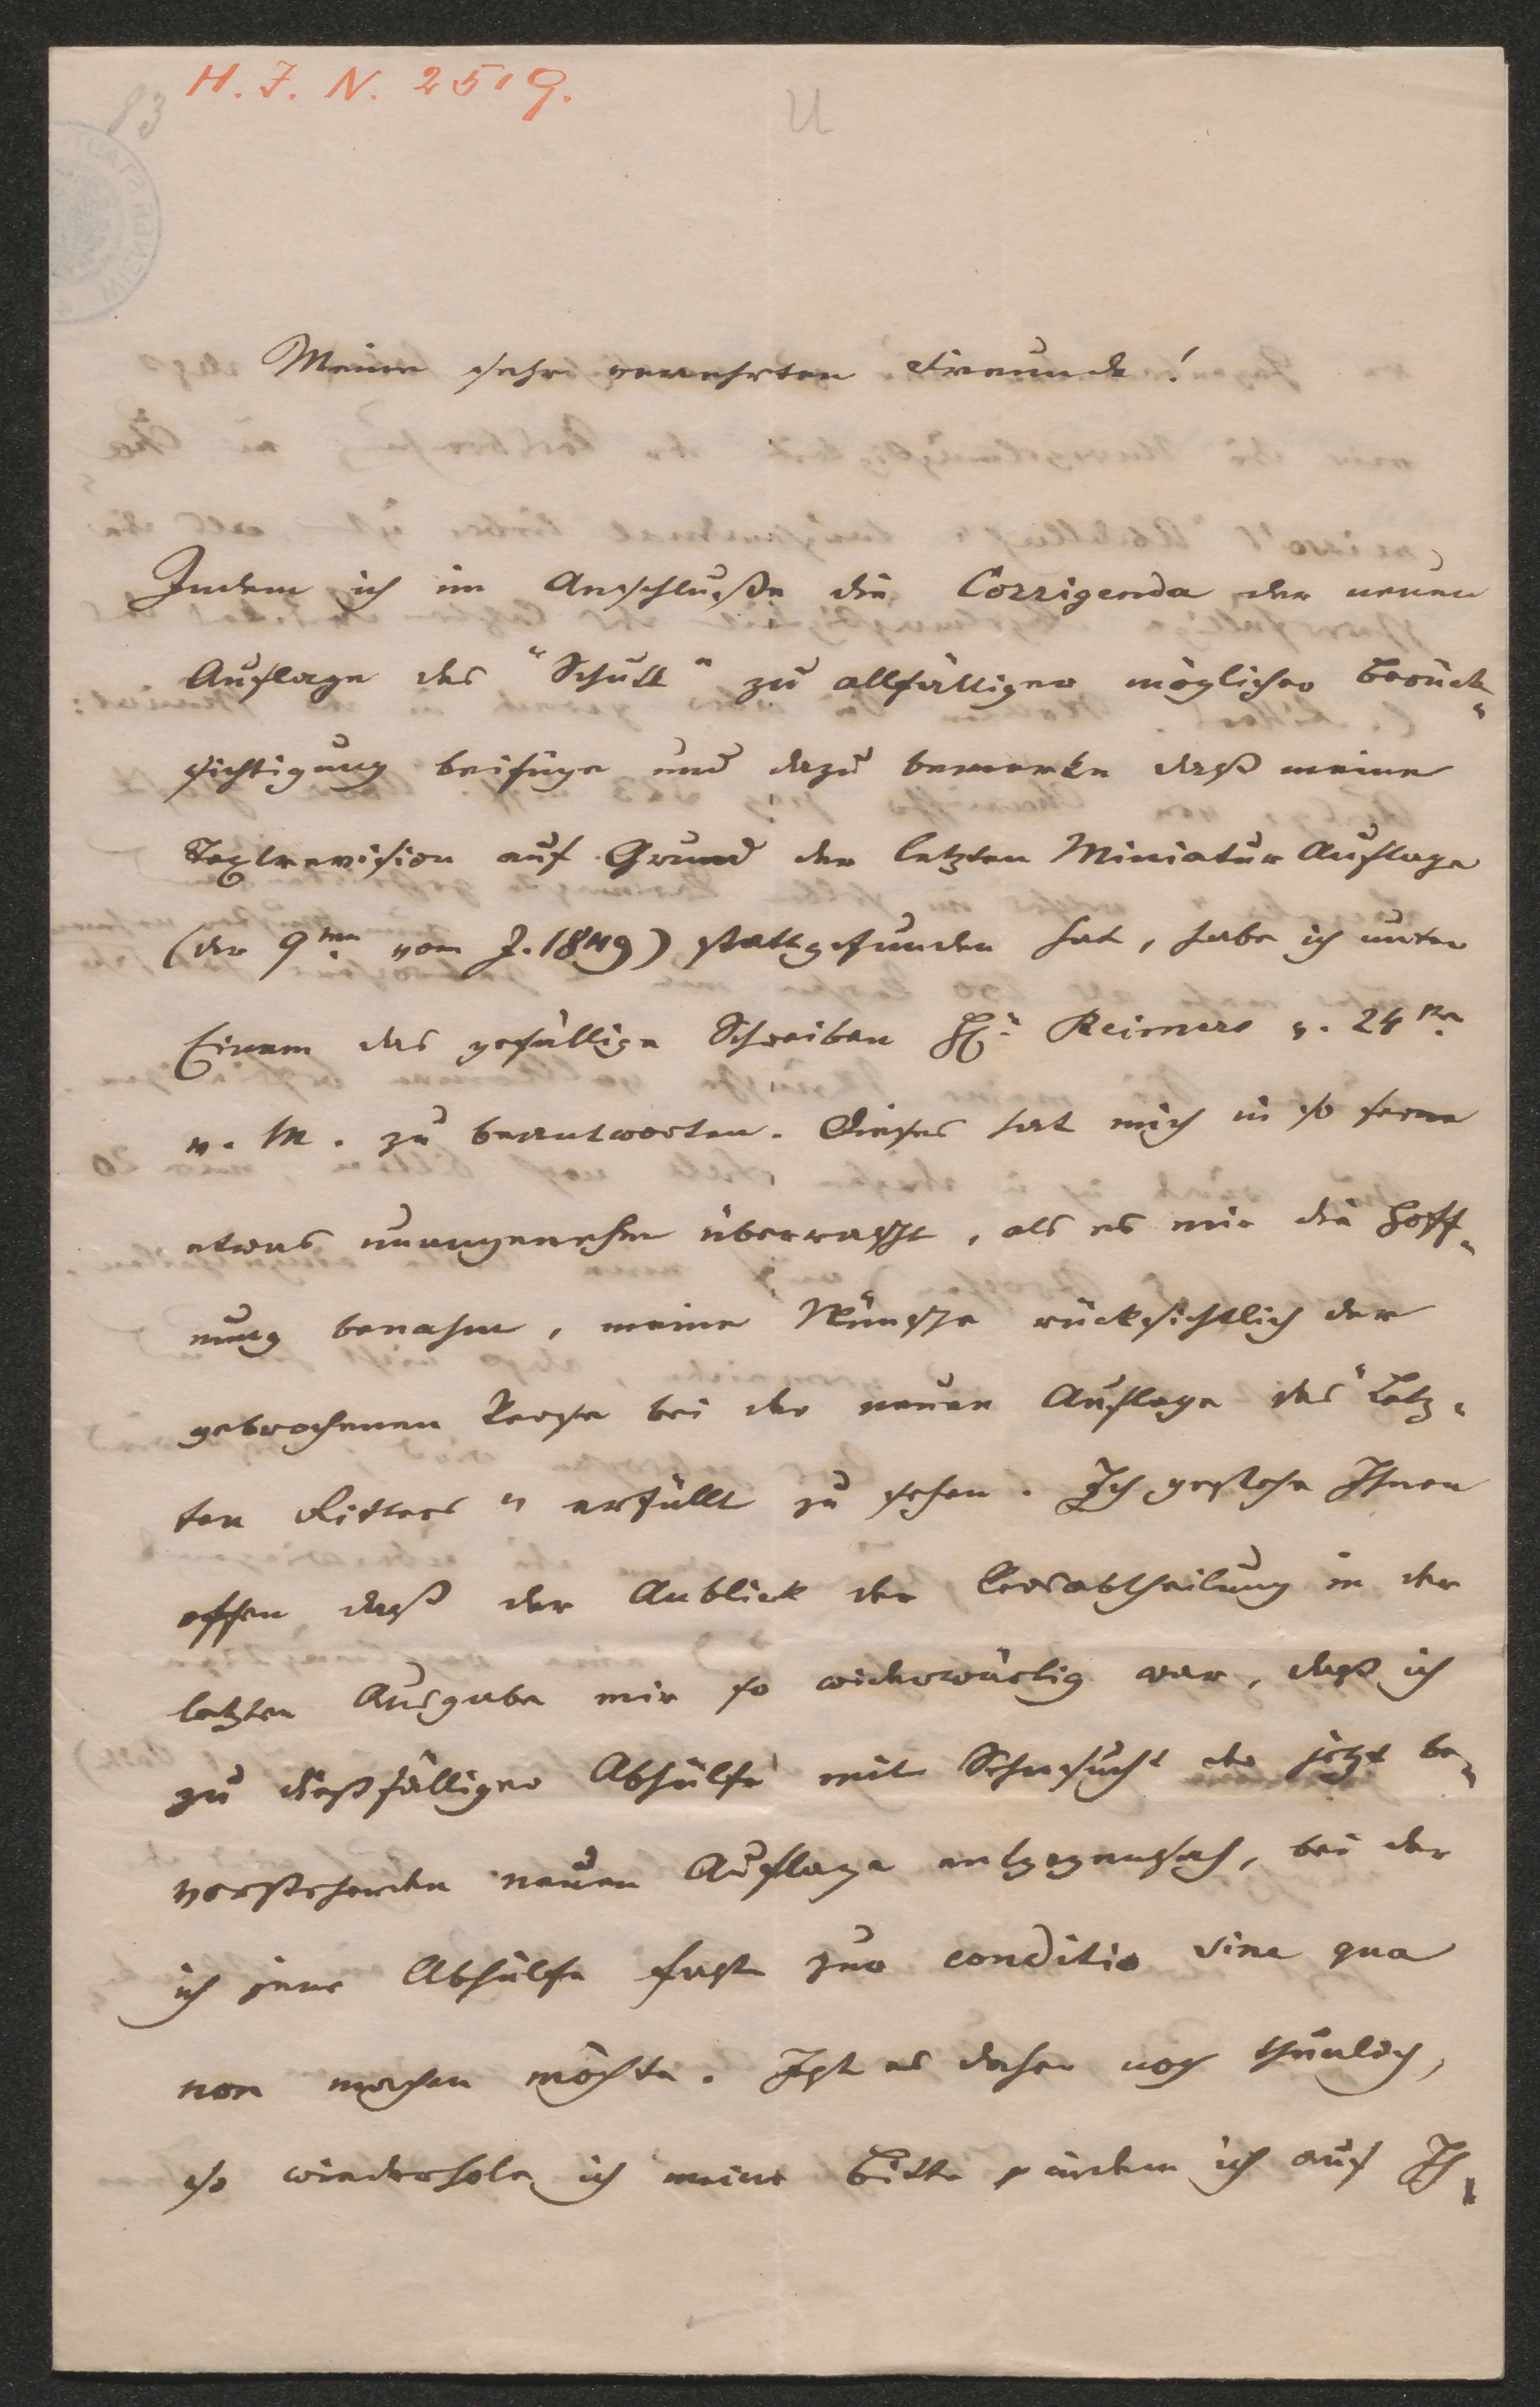 83
H. I. N. 2519.
U
WIENER STADT
Meine sehr verehrten Freunde!
Indem ich im Anschluße die Corrigenda der neuen
Auflage des "Schutt" zu allfälliger möglicher Berück-
sichtigung beifüge und dazu bemerke daß meine
Textrevision auf Grund der letzten Miniatur Auflage
(der 9ten vom J. 1849) stattgefunden hat, habe ich unter
Einem das gefällige Schreiben H. Reimers v. 24ten
v. M. zu beantworten. Dieses hat mich in so ferne
etwas unangenehm überrascht, als es mir die Hoff-
nung benahm, meine Wünsche rücksichtlich der
gebrochenen Verse bei der neuen Auflage des "Letz-
ten Ritters" erfüllt zu sehen. Ich gestehe Ihnen
offen, daß der Anblick der Versabtheilung in der
letzten Ausgabe mir so widerwärtig war, daß ich
zu dießfälliger Abhülfe mit Sehnsucht der jetzt be-
vorstehenden neuen Auflage entgegensah, bei der
ich jene Abhülfe fast zur conditio sine qua
non machen möchte. Ist es daher noch thunlich,
so wiederhole ich meine Bitte, indem ich auf Ih-